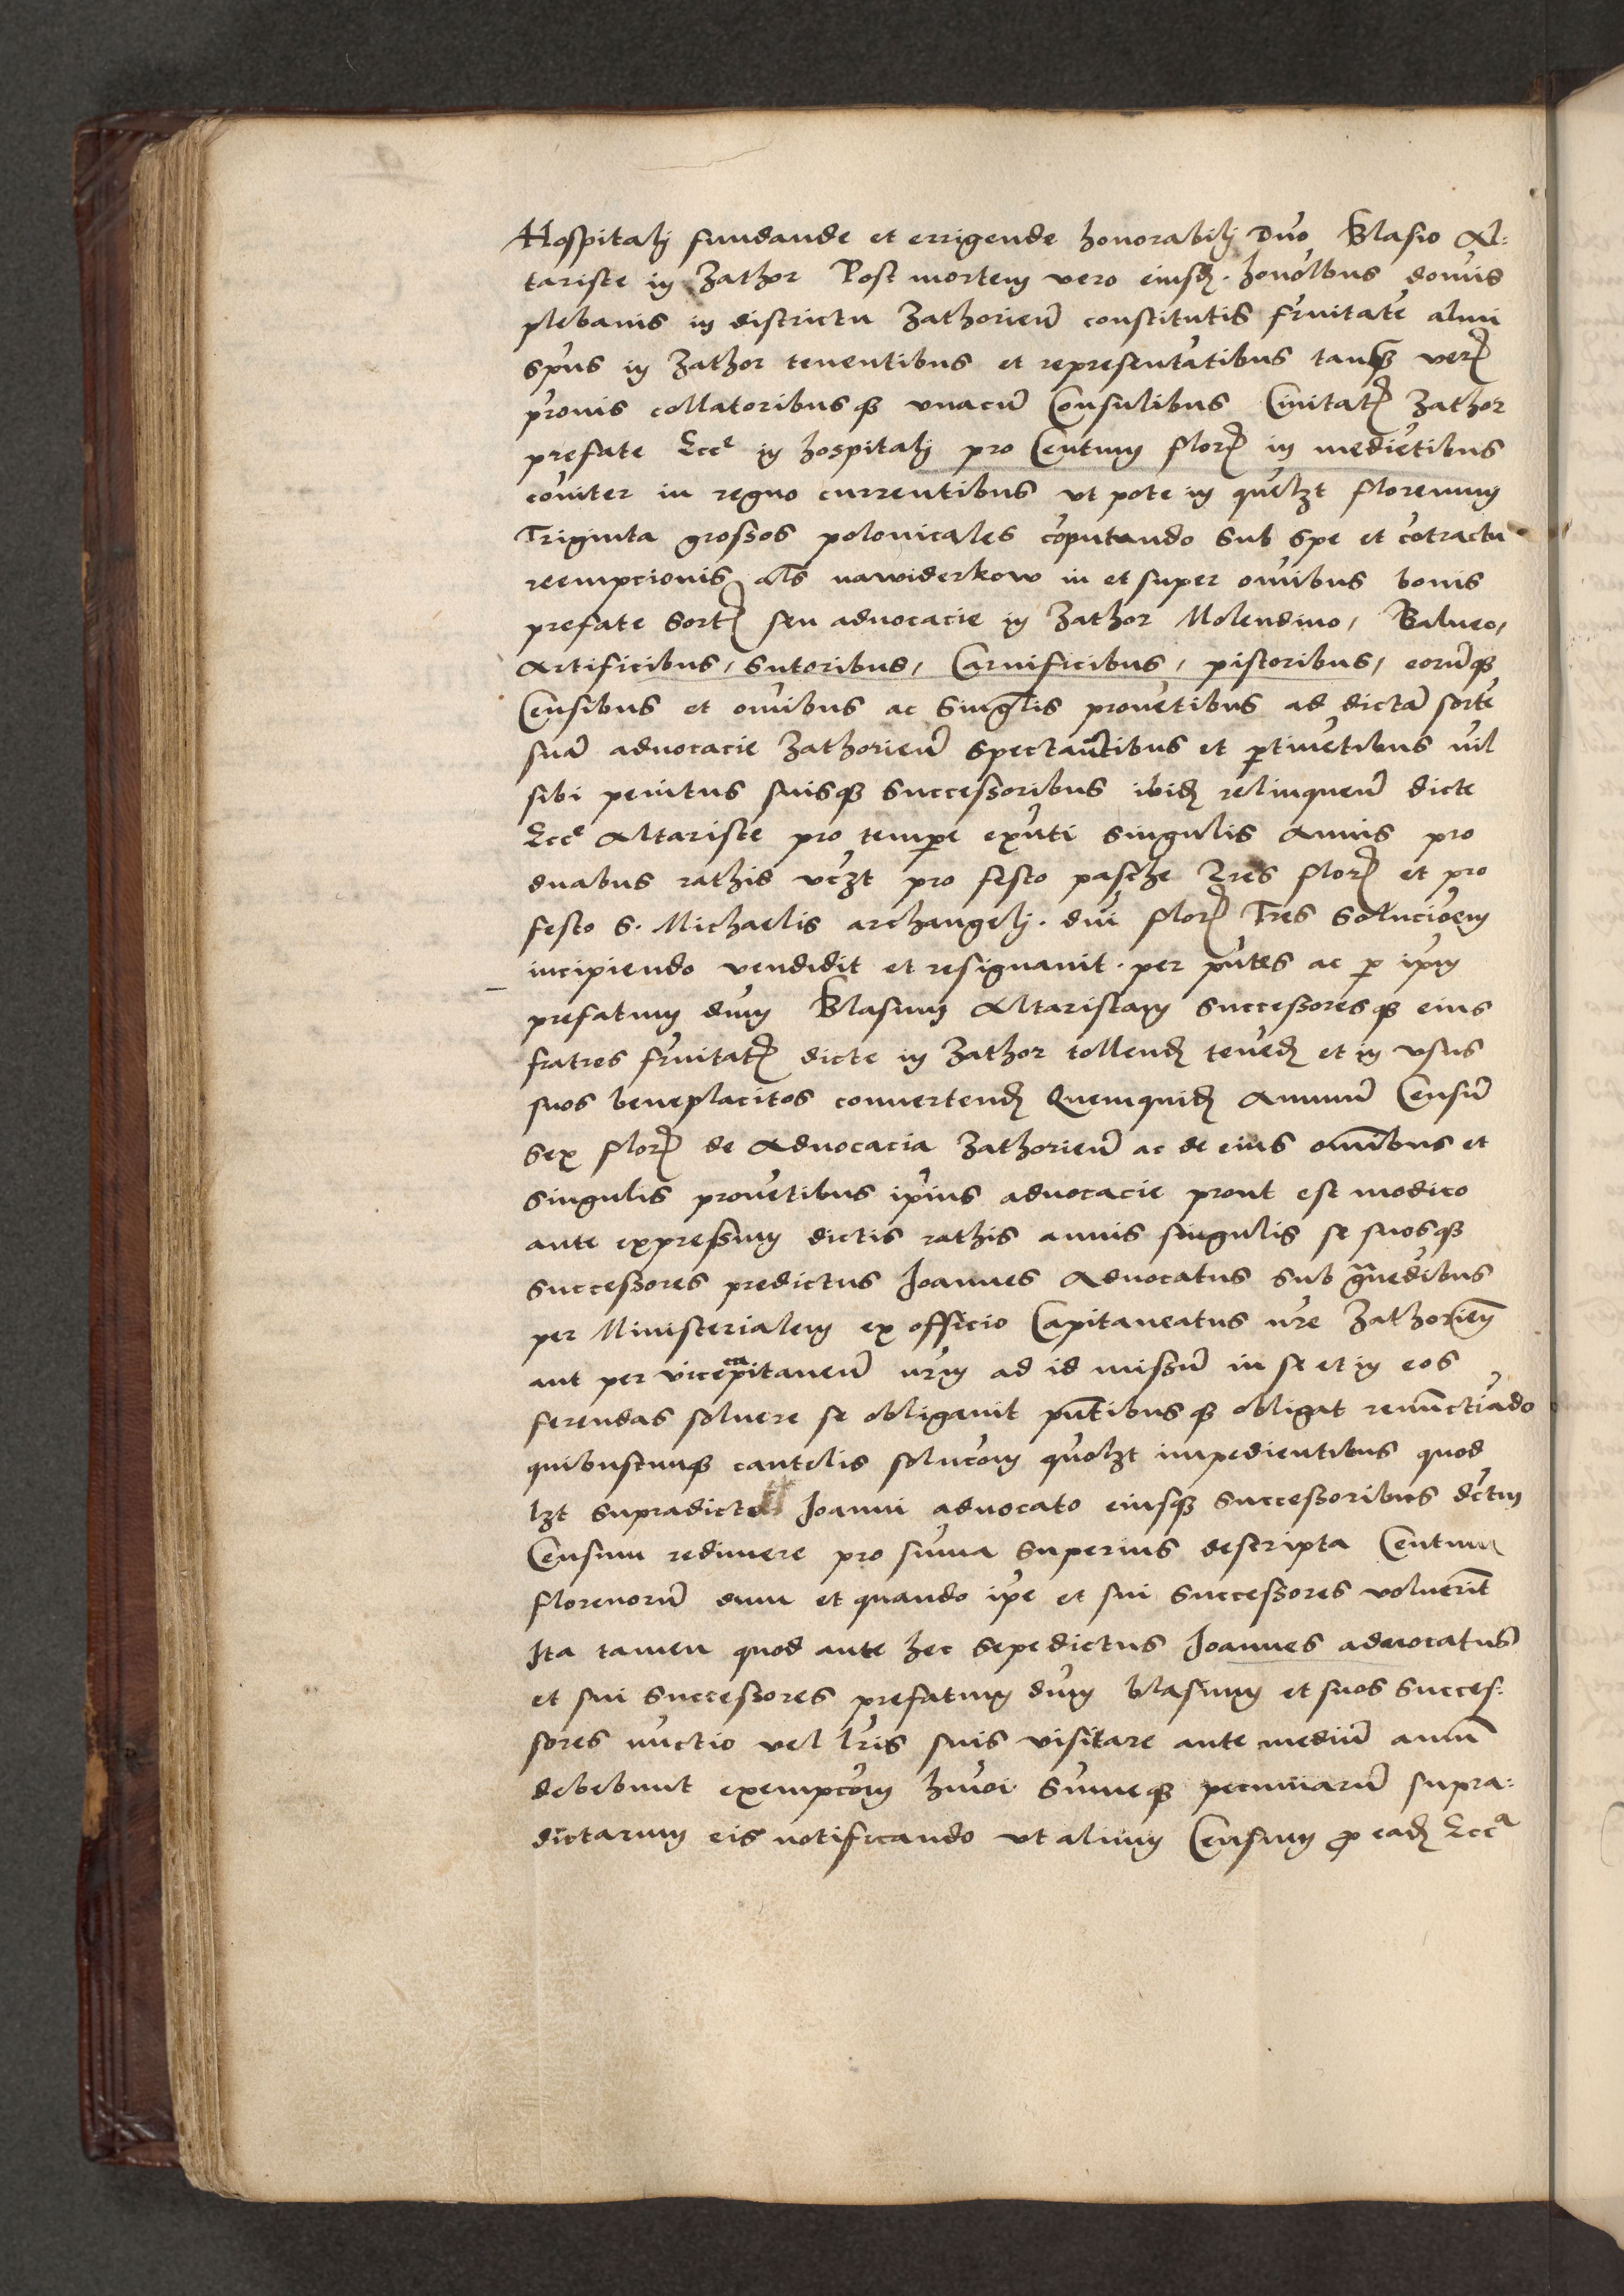 Hospitalj fundande et errigende honorabilj dno Blasio Al:
tariste in Zathor Post mortem vero eiusd. honolbus domis
plebanis in districtu Zathorien constitutis frnitate almi
spus in Zathor tenentibus et representatibus tanq veris
pronis collatoribusq vnacu Consulibus Ciuitatis Zathor
prefate Ecce in hospitalj pro Centum flor in medietibus
coiter in regno currentibus vt pote in quelzt florenum
Triginta grossos polonicales coputando sub spe et cotractu
reempcionis als nawiderkow in et super omibus bonis
prefate sortis seu aduocacie in Zathor Molendino, Balneo,
Artificibus, sutoribus, Carnificibus, pistoribus, eorumq
Censibus et omibus ac singlis prouetibus ad dicta sorte
sua aduocacie Zathorien spectantibus et ptinetibus nil
sibi penitus suisq successoribus ibid relinquen dicte
Ecce Altariste pro tempe exnti singulis Annis pro
duabus rathis vczt pro festo pasche Tres flor et pro
festo S. Michaelis archangelj. dni flor Tres solucioem
incipiendo vendidit et resignauit. per pntes ac p ipm
prefatum dnm Blasium Altaristam successoresq eius
fratres frnitatis dicte in Zathor tollend tened et in vsus
suos beneplacitos conuertend Quemquid Annuu Censu
sex flor de Aduocacia Zathorien ac de eius omnibus et
singulis prouetibus ipius aduocacie prout est modico
ante expressum dictis rathis annis singulis se suosq
successores predictus Joannes Aduocatus sub grauedibus
per Ministerialem ex officio Capitaneatus nre Zathorien
aut per vicecapitaneu nrm ad id missu in se et in eos
ferendas soluere se obligauit pntibusq obligat renunctiado
quibuscunq cautelis solucoem quolzt impedientibus quod
lzt supradicto Joanni aduocato eiusq successoribus dctum
Censum redimere pro suma superius descripta Centum
florenoru dum et quando ipe et sui successores voluerint
Ita tamen quod ante hec sepedictus Joannes aduocatus
et sui successores prefatum dnm blasium et suos succes:
sores nuctio vel lris suis visitare ante mediu annu
debebunt exempcoem hmoi sumeq pecuniaru supra:
dictarum eis notificando vt alium Censum pro ead Ecca